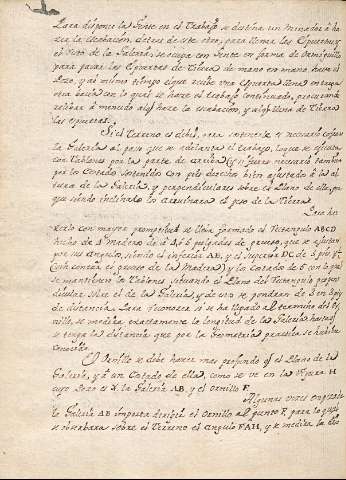 Para disponer la Gente en el Trabajo se destina un Minador á ha
zer la escabacion, detras de este otro, para llenar las Espuertas, y
el resto de la Galeria se ocupa con Gente en forma de Ormiguillo
para pasar las Espuertas de Tierra de mano en mano hasta el
Pozo, y al mismo tiempo que recibe una Espuerta llena entrega
otra bacia con lo qual se haze el trabajo continuado, procurando
relebar á menudo al que haze la escabacion, y al que llena de Tierra
las espuertas.
Si el Terreno es debil, para sostenerle es necesario cofrar
la Galeria al paso que se adelanta el trabajo, lo que se ejecuta
con Tablones por la parte de arriba (y si fuere necesario tambien
por los Costados) sostenidos con pies derechos bien ajustados á la al
tura de la Galeria, y perpendiculares sobre el Plano de ella, por
que siendo inclinados los arruinara el peso de la Tierra.
Para ha
zerlo con mayor promptitud se lleva formado el Rectangulo ABCD
hecho de Madera de á 4, ó 6 pulgadas de grueso, que se ajustan
por sus angulos, siendo el inferior AB, y el superior DC de 3 pies, y
(sin contar el grueso de la Madera) y los Costados de 6 con lo que
se mantienen los Tablones, situando el Plano del Rectangulo perpen
dicular sobre el de la Galeria, y de estos se pondran de 3 en 3 pies
de distancia. Para reconozer si se ha llegado al termino del Or
nillo, se medira exactamente la longitud de la Galeria hasta
se tenga la distancia que por la Geometria practica se habia
conocido.
El Ornillo se debe hazer mas profundo que el Plano de la
Galeria, y á un Costado de ella, como se ve en la Figura H
cuyo Pozo es X la Galeria AB, y el Ornillo F.
Algunas vezes empezada
la Galeria AB importa dirigir el Ornillo al punto F, para lo qual
se observara sobre el Terreno el angulo FAH, y se medira la dis